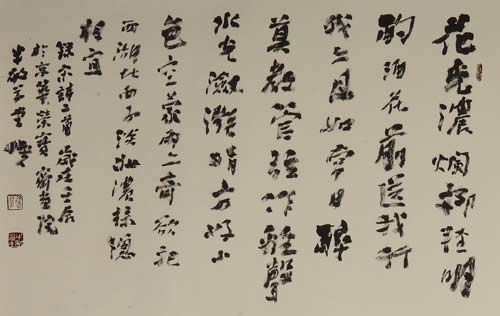 花光濃爛柳輕明
酌酒花前送我行
我亦且如常日醉
莫教管弦作離聲
水光瀲灔晴方好山
色空蒙雨亦奇欲把
西湖比西子淡妝濃抹總
相宜
錄宋詩二首歲在壬辰
於京華榮寶齋畫院